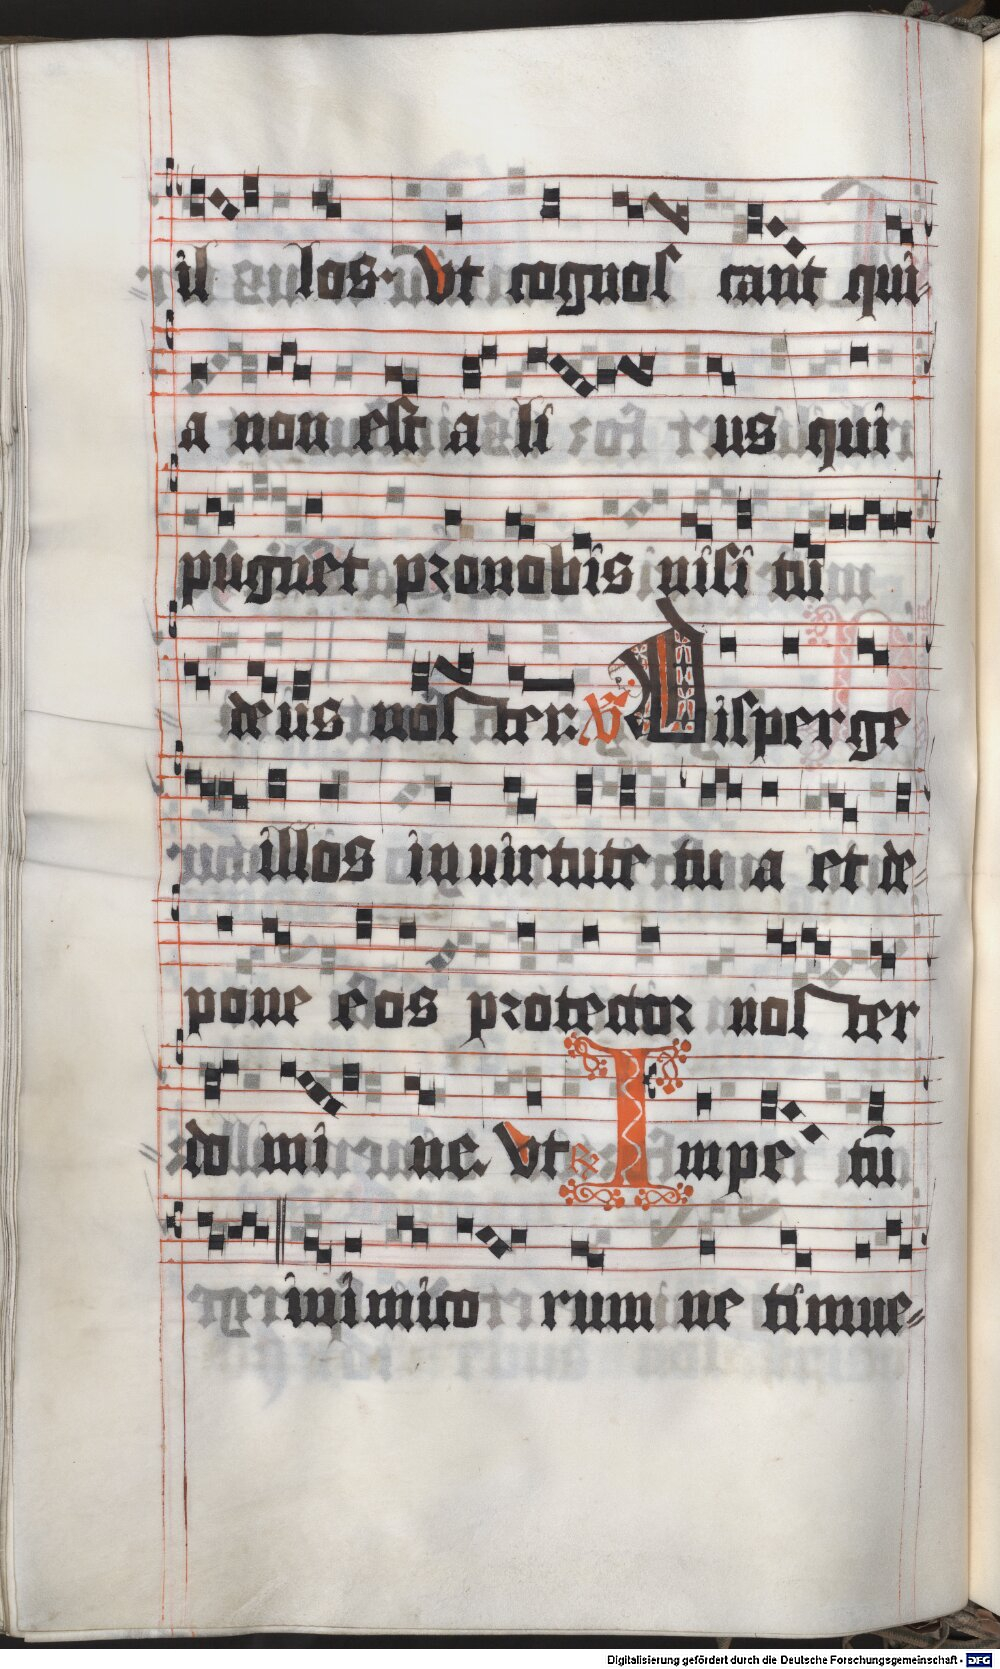 il los. Vt cognos cant qui
a non est a li us qui
pugnet pro nobis nisi tu
deus nos ter. V Disperge
illos in uirtute tu a et de
pone eos protector nos ter
do mi ne. Vt R Impe tū
inimico rum ne timue
Digitalisierung gefördert durch die Deutsche Forschungsgemeinschaft - DFG